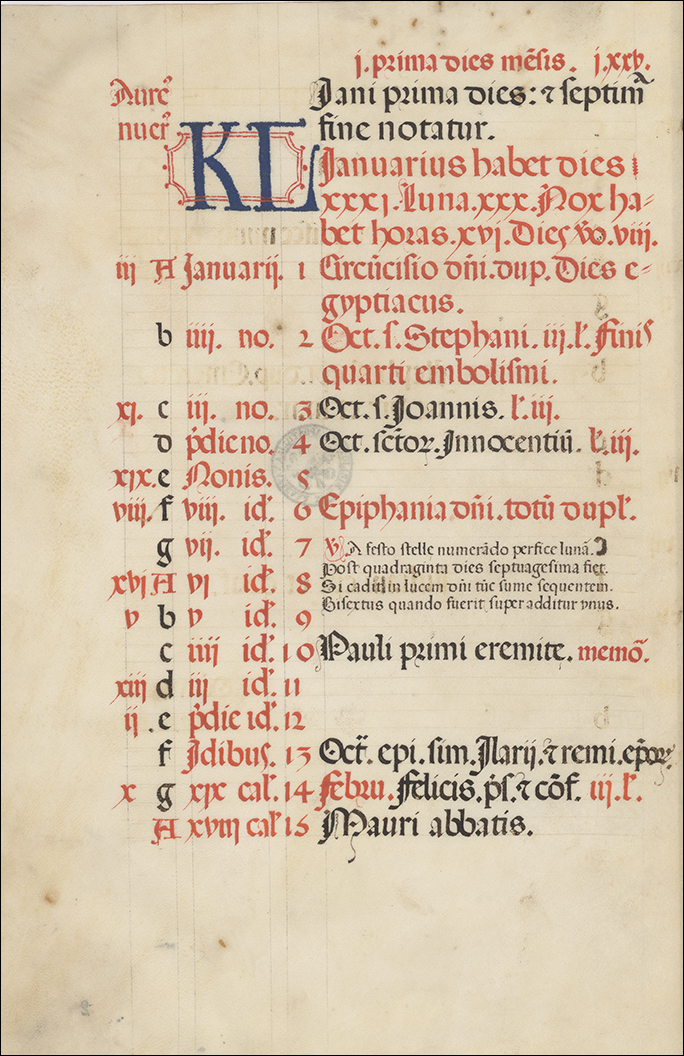 j. prima dies mēsis. j. xxv.
Aure᷒ Jani prima dies: ⁊ septima
nuer᷒ fine notatur.
KL Januarius habet dies
xxxj. Luna. xxx. Nox ha-
bet horas. xvj. Dies v̊o. viii.
iii A Januarij. 1 Circūcisio dn̄i. dup. Dies e-
gyptiacus.
b iiii. no. 2 Oct. s. Stephani. iii. l'. Finis
quarti embolismi.
xj. c iii. no. 3 Oct. s. Joannis. l'. iii.
d p̄die no. 4 Oct. sct̄or. Innocentiū. l'. iii.
xix. e Nonis. 5
viii. f viii. id'. 6 Epiphania dn̄i. totū dupl'.
g vii. id'. 7 V. A festo stelle numerādo perfice lunā.
Post quadraginta dies septuagesima fiet.
xvi A vi id'. 8 Si cadit in lucem dn̄i tūc sume sequentem.
Bisextus quando fuerit super additur vnus.
v b v id'. 9
c iiii id'. 10 Pauli primi eremite. memō.
xiii d iii id'. 11
ii. e p̄die id'. 12
f Idibus. 13 Oct. epi. sim. Ilarij. ⁊ remi. ep̄or.
x g xix cal'. 14 Febru. Felicis. p̄s. ⁊ cōf. iii. l'.
A xviii cal' 15 Mauri abbatis.